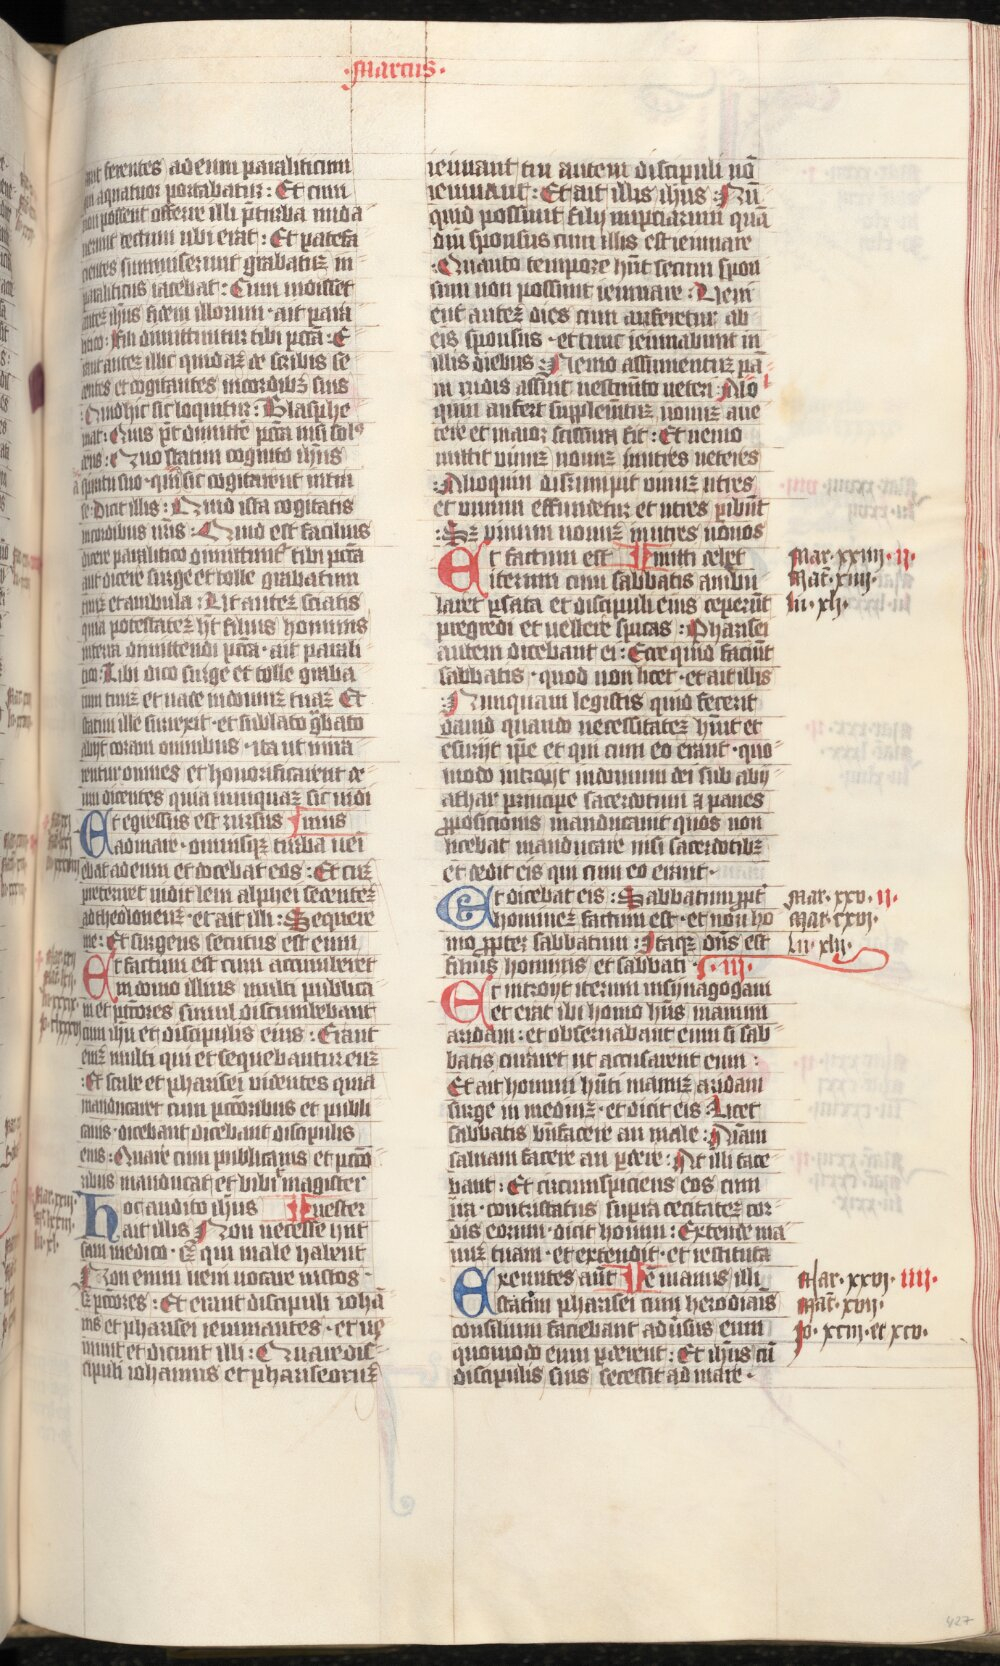 ·Marcus·
unt ferentes ad eum paraliticum
qui a quatuor portabatur : Et cum
non possent offerre illi p̄ turba nuda
verunt tectum ubi erat : Et patefa
cientes summiserunt grabatuʒ in
paraliticus iacebat : Cum uidisset
auteʒ ih̄us fidem illorum · ait para
litico : Fili dimittuntur tibi pctā : E
rant auteʒ illic quidaʒ de scribis se
dentes et cogitantes in cordibʒ suis
: Quid hic sic loquitur : Blasphe
mat : Quis pt̄ dimitte pctā nisi solꝰ
deus : Quo statim cognito ih̄us
spiritu suo · qui sic cogitarent intra
se · Dicit illis : Quid ista cogitatis
in cordibus vr̄is : Quid est facilius
dicere paralitico dimittunt᷑ tibi pctā
aut dicere surge et tolle grabatum
tuuʒ et ambula : Ut auteʒ sciatis
quia potestateʒ ht̄ filius hominis
in terra dimittendi pctā · ait parali
tico : Tibi dico surge et tolle graba
tum tuuʒ et uade in domuʒ tuaʒ Et
statim ille surrexit · et sublato gͣbato
abijt coram omnibus · ita ut mira
rentur omnes et honorificarent de
um dicentes quia nunquaʒ sic uidi
Et egressus est rursus Jmus
ad mare · omnisqʒ turba ueī
ebat ad eum et docebat eos : Et cuʒ
preteriret uidit leui alphei sedenteʒ
ad theoloneuʒ · et ait illi : Sequere
me : Et surgens secutus est eum
Et factum est cum accumberet
in domo illius multi publica
ni et pctōres simul discumbebant
cum ih̄u et discipulis eius : Erant
eniʒ multi qui et sequebantur euʒ
: Et scribe et pharisei uidentes quia
manducaret cum pctōribus et publi
canis · dicebant dicebant discipulis
eius : Quare cum publicanis et pctō
ribus manducat et bibit magister
Hoc audito ih̄us uester
ait illis Non necesse hn̄t
sani medico · sʒ qui male habent
Non enim ueni uocare iustos ·
sʒ pctōres : Et erant discipuli iohā
nis et pharisei ieiunantes · et ue
niunt et dicunt illi : Quare dis
cipuli iohannis et phariseoruʒ
ieiunant tui autem discipuli nō
ieiunant : Et ait illis ih̄us Nū
quid possunt filij nupciarum quā
diu sponsus cum illis est ieiunare
: Quanto tempore hn̄t secum spon
sum non possunt ieiunare : Veni
ent auteʒ dies cum auferetur ab
eis sponsus · et tunc ieiunabunt in
illis diebus : Nemo assumentuʒ pā
ni rudis assuit uestimēto ueteri : Alio
quin aufert supplementuʒ nouuʒ aue
tere et maior scissura fit : Et nemo
mittit uinuʒ nouuʒ in utres ueteres
: Alioquin disrumpit uinuʒ utres
et uinum effundetur et utres ꝑibūt
: Sʒ uinum nouuʒ in utres nouos
Et factum est mitti debet
iterum cum sabbatis ambu
laret ꝑ sata et discipuli eius ceperūt
pregredi et uellere spicas : Pharisei
autem dicebant ei : Ecce quid faciūt
sabbatis · quod non licet · et ait illis
: Nunquam legistis quid fecerit
dauid quando necessitateʒ hūit et
esurijt ip̄e et qui cum eo erant · quo
modo introijt in domum dei sub abij
athar principe sacerdotum ⁊ panes
ꝓpositionis manducauit quos non
licebat manducare nisi sacerdotibʒ
et dedit eis qui cum eo erant ·
Et dicebat eis : Sabbatum ꝓpt᷑
homineʒ factum est · et non ho
mo ꝓpter sabbatum : Itaqʒ dn̄s est
filius hominis et sabbati · iii ·
Et introijt iterum in synagogam
et erat ibi homo hn̄s manum
aridam : et obseruabant eum si sab
batis curaret ut accusarent eum :
Et ait homini hn̄ti manuʒ aridam
surge in mediuʒ · et dicit eis Licet
sabbatis bn̄facere an male : Aīam
saluam facere an ꝑdere : At illi tace
bant : Et circumspiciens eos cum
ira · contristatus supra cecitateʒ cor
dis eorum · dicit homini : Extende ma
nuʒ tuam · et extendit · et restituta
Exeuntes aūt ē manus illi
statim pharisei cum herodianis
consilium faciebant aduersus eum
quomodo eum ꝑderent : Et ih̄us cū
discipulis suis secessit ad mare ·
Mar · xxiiii · ii ·
Mat̄ · xiiii ·
lu · xlj ·
Mar · xxv · ii ·
Mat · cxvi ·
Lu · xlij ·
Mar · xxvi · iiii ·
Mat̄ · xvii ·
Jo · xciii · et xcv ·
427